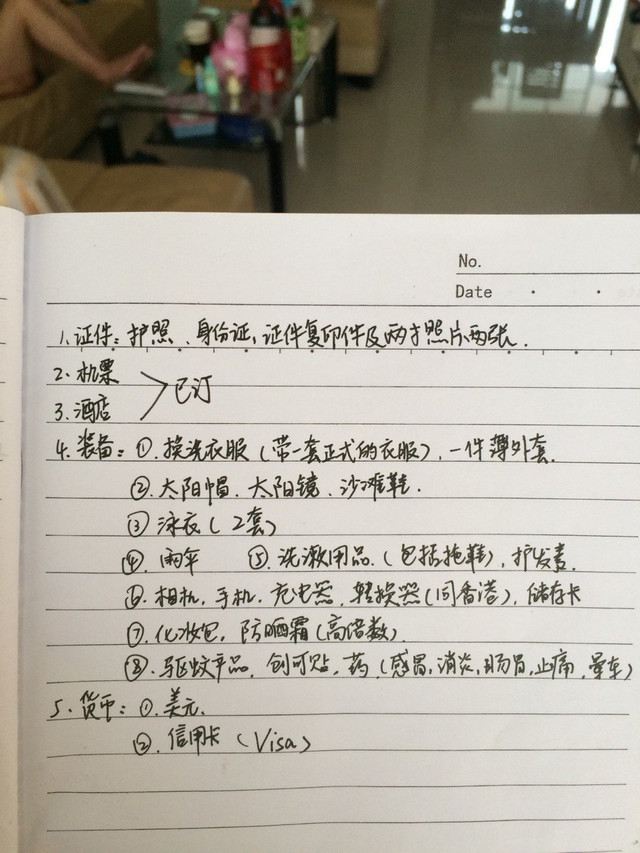 No.
Date
1. 证件：护照、身份证、证件复印件及两寸照片两张.
2. 机票
已订
3. 酒店
4. 装备：①. 换洗衣服（带一套正式的衣服），一件薄外套.
②. 太阳帽. 太阳镜. 沙滩鞋.
③ 泳衣（2套）
④. 雨伞 ⑤. 洗漱用品.（包括拖鞋），护发素.
⑥. 相机，手机. 充电器，转换器（同香港），储存卡
⑦. 化妆包，防晒霜（高倍数）.
⑧. 驱蚊产品，创可贴，药（感冒，消炎，肠胃，止痛，晕车）
5. 货币：①. 美元.
②. 信用卡（Visa）